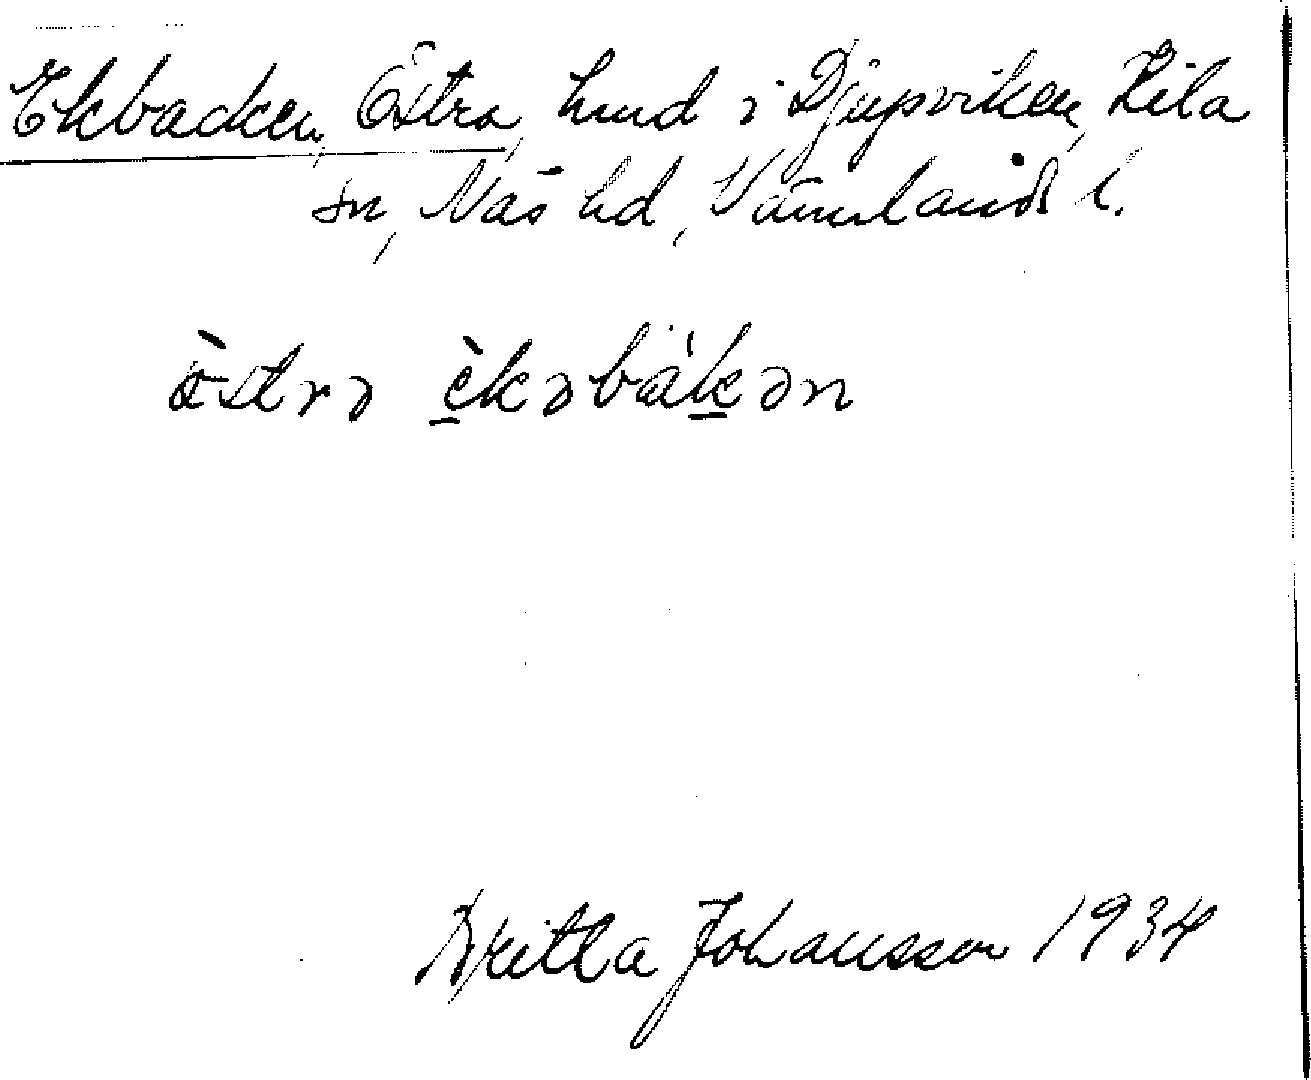 Ekbacken, Östra, hmd i Djupviken, Kila
sn, Näs hd, Värmlands l.
östrə èkəbàkən
Britta Johansson 1934